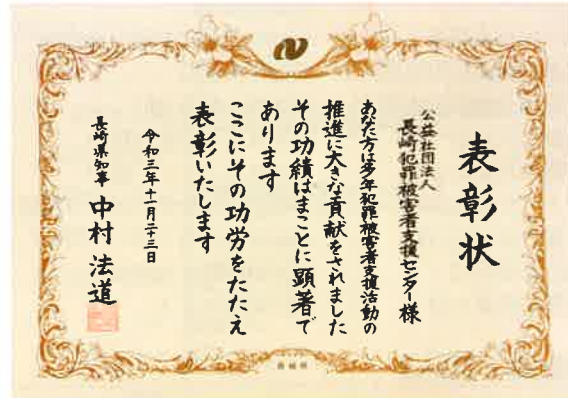 表彰状
公益社団法人
長崎犯罪被害者支援センター様
あなた方は多年犯罪被害者支援活動の
推進に大きな貢献をされました
その功績はまことに顕著で
あります
ここにその功労をたたえ
表彰いたします
令和三年十一月二十三日
長崎県知事 中村法道
長崎県